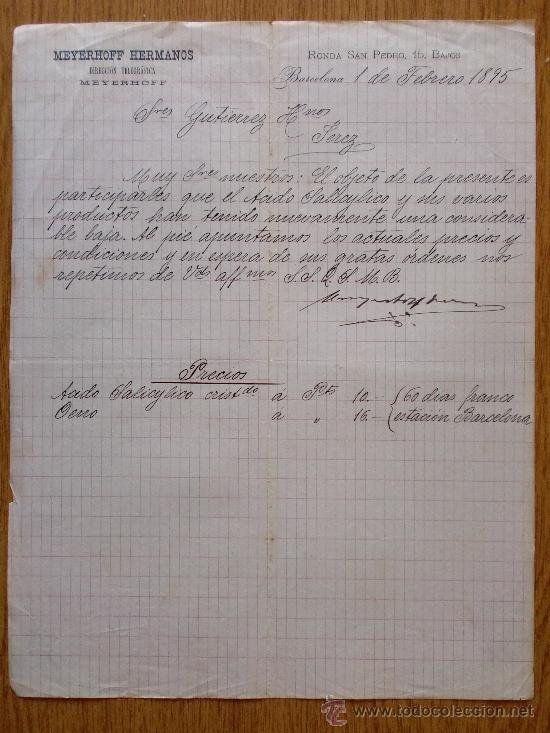 MEYERHOFF HERMANOS
DIRECCIÓN TELEGRÁFICA
MEYERHOFF
RONDA SAN PEDRO, 15, BAJOS
Barcelona 1 de Febrero 1895
Sres Gutierrez Hnos
Jerez
Muy Sres nuestros: El objeto de la presente es
participarles que el Acido Salicylico y sus varios
productos han tenido nuevamente una considera
ble baja. Al pie apuntamos los actuales precios y
condiciones y en espera de sus gratas órdenes nos
repetimos de Vds affmos S.S.Q.S.M.B.
Precios
Acido Salicylico cristdo á Pts 10.- { 60 dias franco
Oeno á " 16.- { estación Barcelona
www.todocoleccion.net